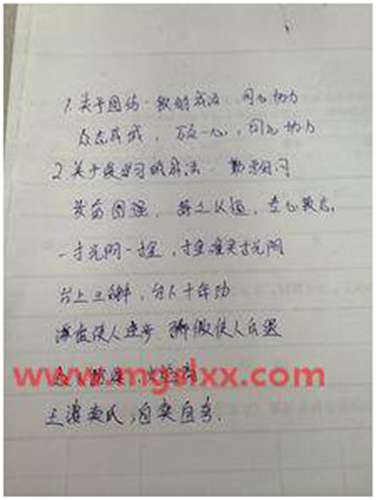 1.关于团结一致的成语 同心协力
众志成城，万众一心，同心协力
2.关于爱学习的成语 勤学好问
发奋图强，持之以恒，专心致志
一寸光阴一寸金，寸金难买寸光阴
台上三分钟，台下十年功
谦虚使人进步 骄傲使人后退
www.mgslxx.com
王婆卖瓜，自卖自夸.